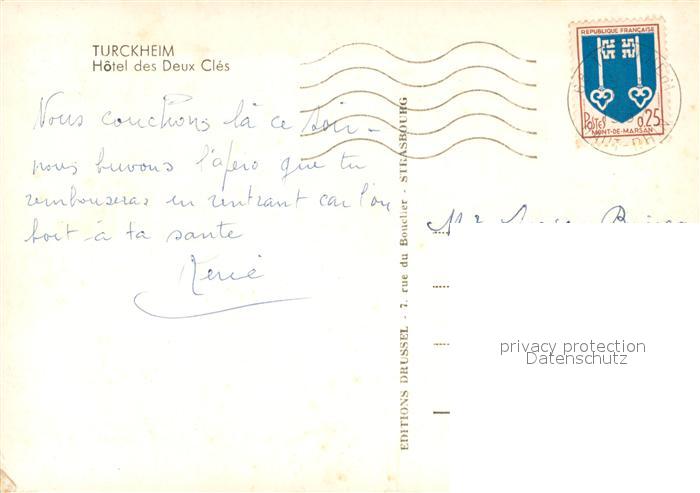 TURCKHEIM
Hôtel des Deux Clés
Nous couchons là ce soir -
nous buvons l'apéro que tu
rembourseras en rentrant car l'on
boit à ta santé
René
EDITIONS DRUSSEL - 7, rue du Bouclier - STRASBOURG
REPUBLIQUE FRANÇAISE
POSTES 0,25
MONT-DE-MARSAN
Mr
privacy protection
Datenschutz